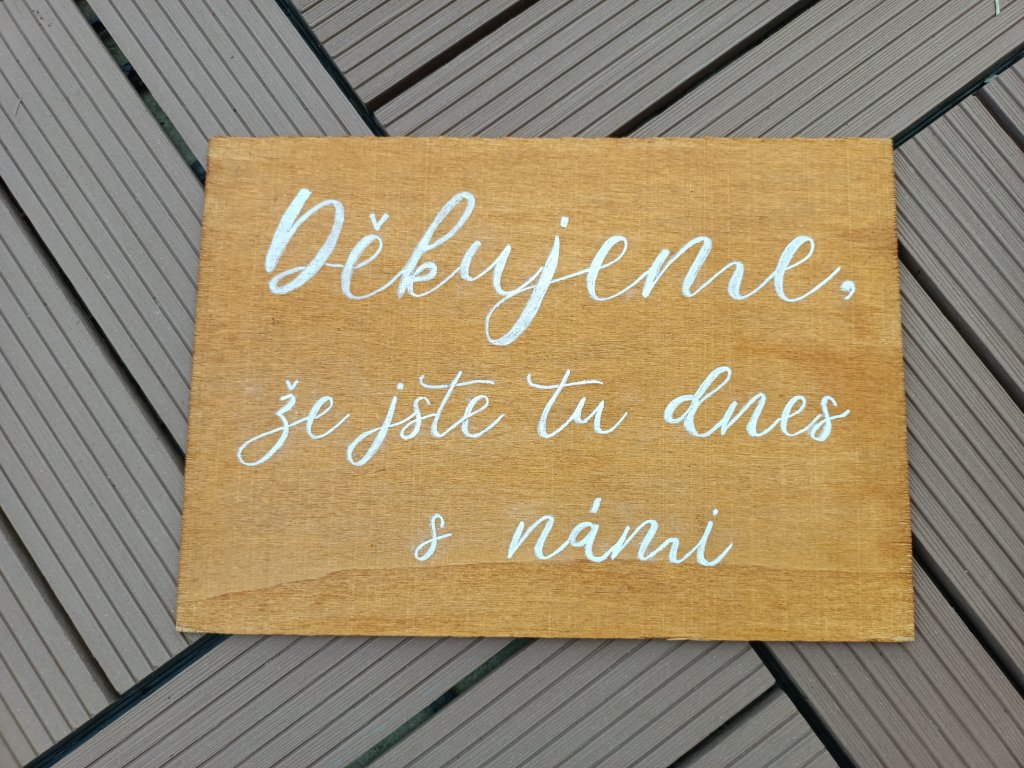 Děkujeme,
že jste tu dnes
s námi